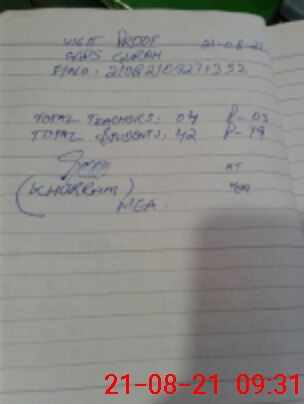 VISIT PROOF 21-08-21
GGPS GURAM
F/NO: 21082109271352
TOTAL TEACHERS: 04 P-03
TOTAL STUDENTS: 42 P-19
(KHURRAM) AT
MEA.
21-08-21 09:31